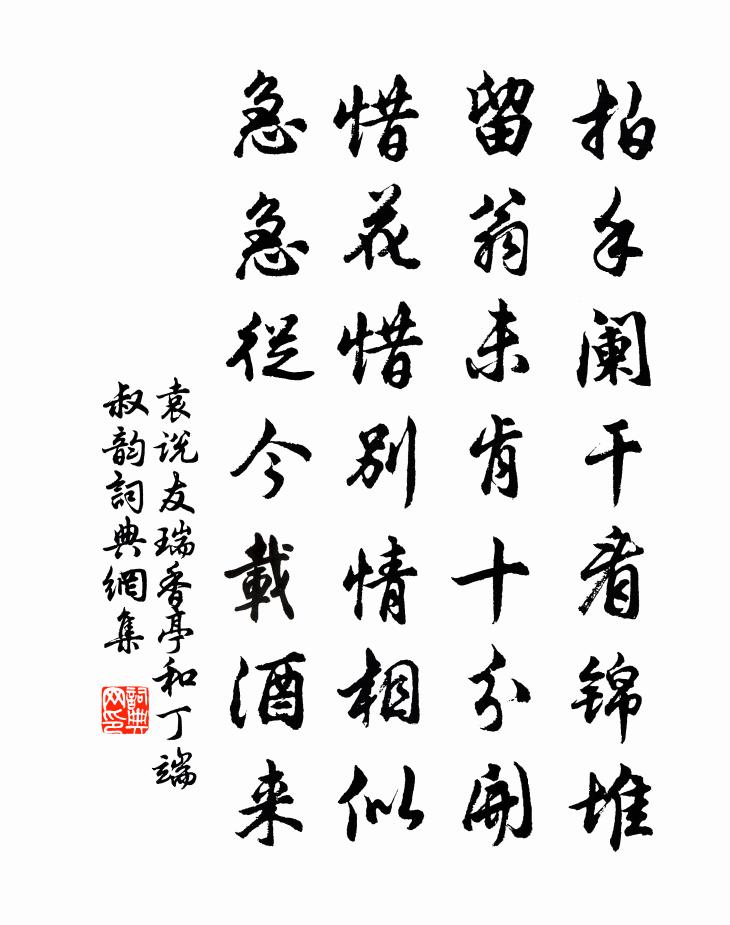 拍手阑干看锦堆
留翁未肯十分開
惜花惜别情相似
急急從今載酒来
袁说友瑞香亭和丁端
叔韵詞典網集
詞典网印